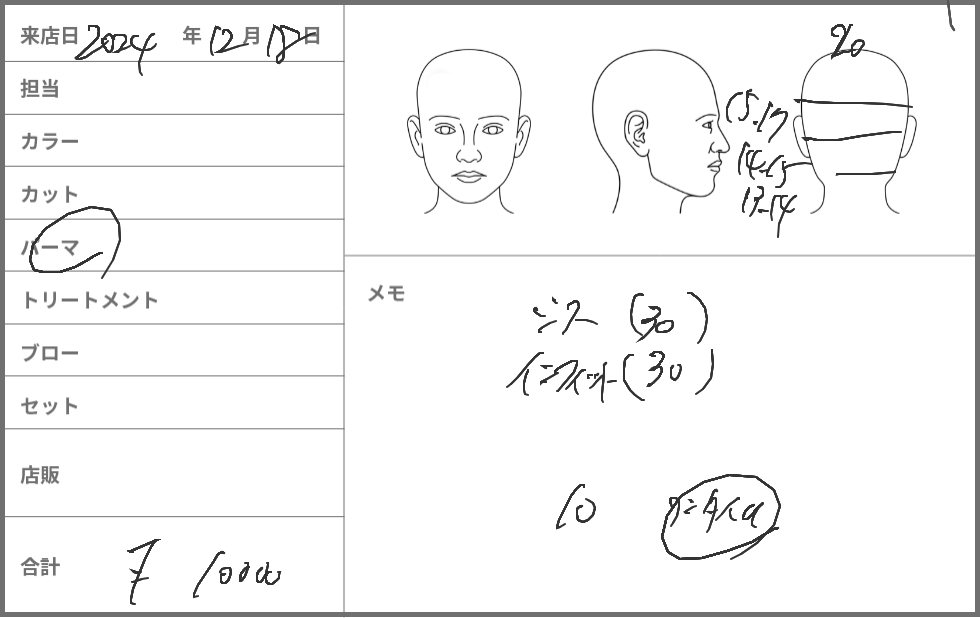 来店日 2024 年 12月 18日
担当
カラー
カット
パーマ
トリートメント
ブロー
セット
店販
合計 ¥ 10000
20
15-17
14-15
13-14
メモ
シス (30)
インフィニット (30)
10